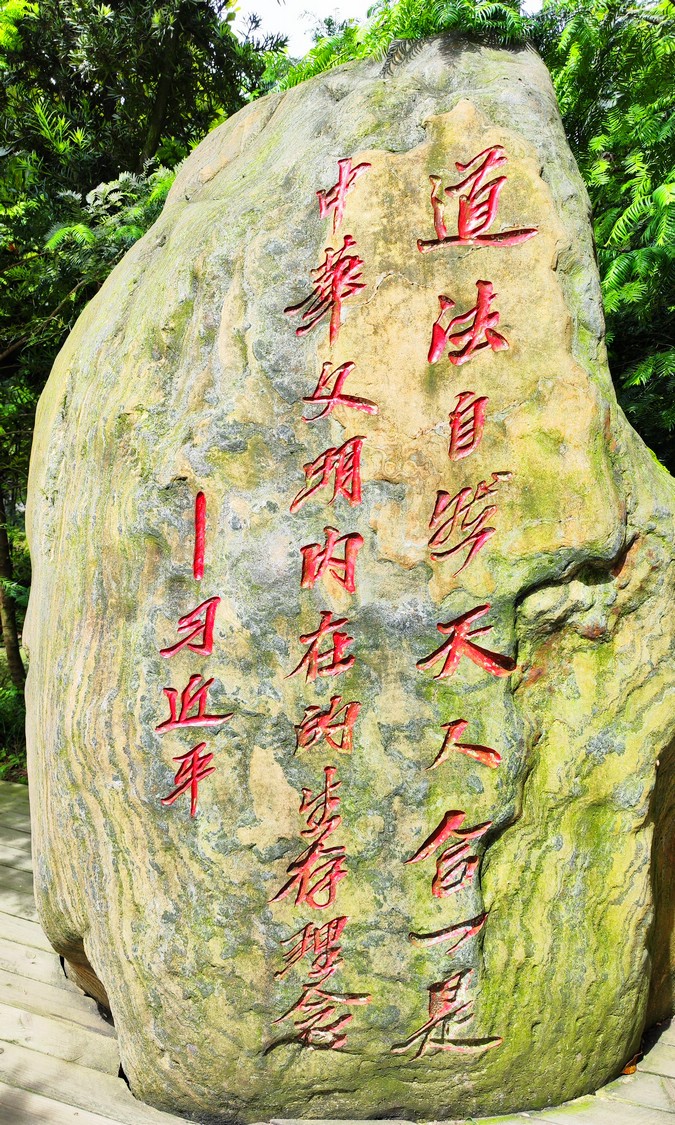 道法自然天人合一是
中华文明内在的生存理念
—习近平